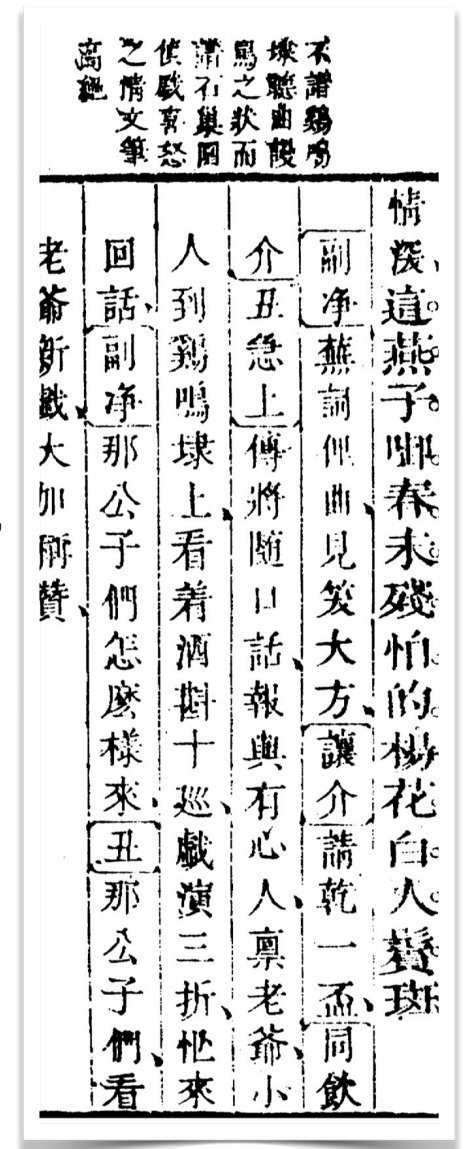 不譜鷄鳴
埭聽曲謾
罵之狀而
譜石巢園
偵戲喜怒
之情文筆
高絕
情深、這燕子啣春未殘怕的楊花白人鬢斑
副净蕪詞俚曲、見笑大方、讓介請乾一盃、同飲
介丑急上傳將隨口話、報與有心人、禀老爺、小
人到鷄鳴埭上、看着酒斟十巡、戲演三折、忙來
回話、副净那公子們怎麽樣來、丑那公子們、看
老爺新戲、大加稱贊、